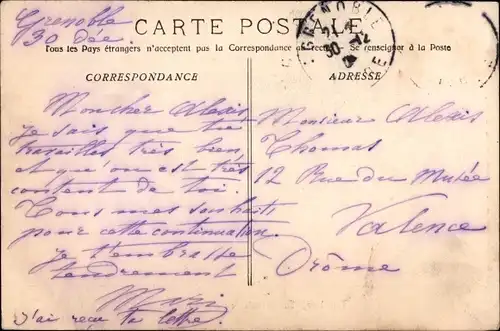 Grenoble
30 Déc.
CARTE POSTALE
Tous les Pays étrangers n'acceptent pas la Correspondance au recto. Se renseigner à la Poste
CORRESPONDANCE
Mon cher Alexis
je sais que tu
travailles très bien
et que l'on est très
content de toi.
Tous mes souhaits
pour cette continuation.
je t'embrasse
tendrement
j'ai reçu ta lettre.
GRENOBLE
30 -12
ADRESSE
Monsieur Alexis
Thomas
12 Rue du Musée
Valence
Drôme